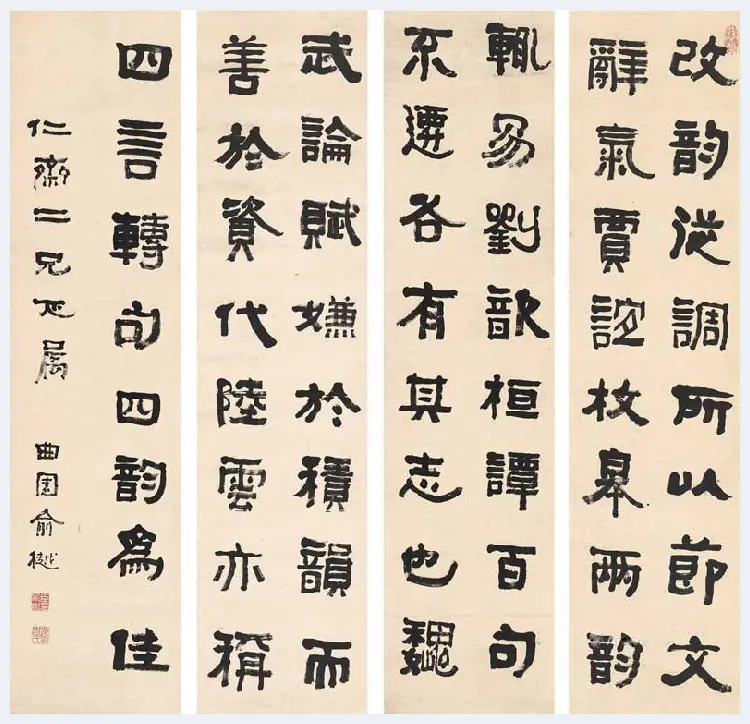 改韵從調所以節文
辭氣賈誼枚皋兩韵
輒易劉歆桓譚百句
不遷各有其志也魏
武論賦嫌於積韻而
善於資代陸雲亦稱
四言轉句四韵爲佳
仁齋二兄正属 曲園俞樾